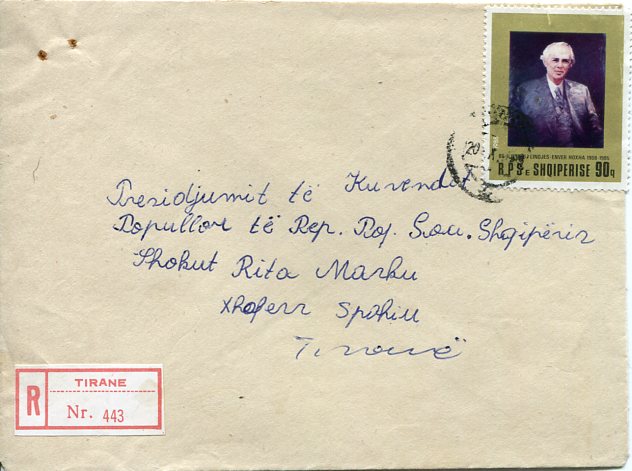 80-VJETORI I LINDJES-ENVER HOXHA 1908-1985
R.P.S E SHQIPERISE 90q
Presidjumit të Kuvendit
Popullor të Rep. Pop. Soc. Shqipëris
Shokut Rita Marku
Xhaferr Spahiu
Tiranë
TIRANE
R Nr. 443